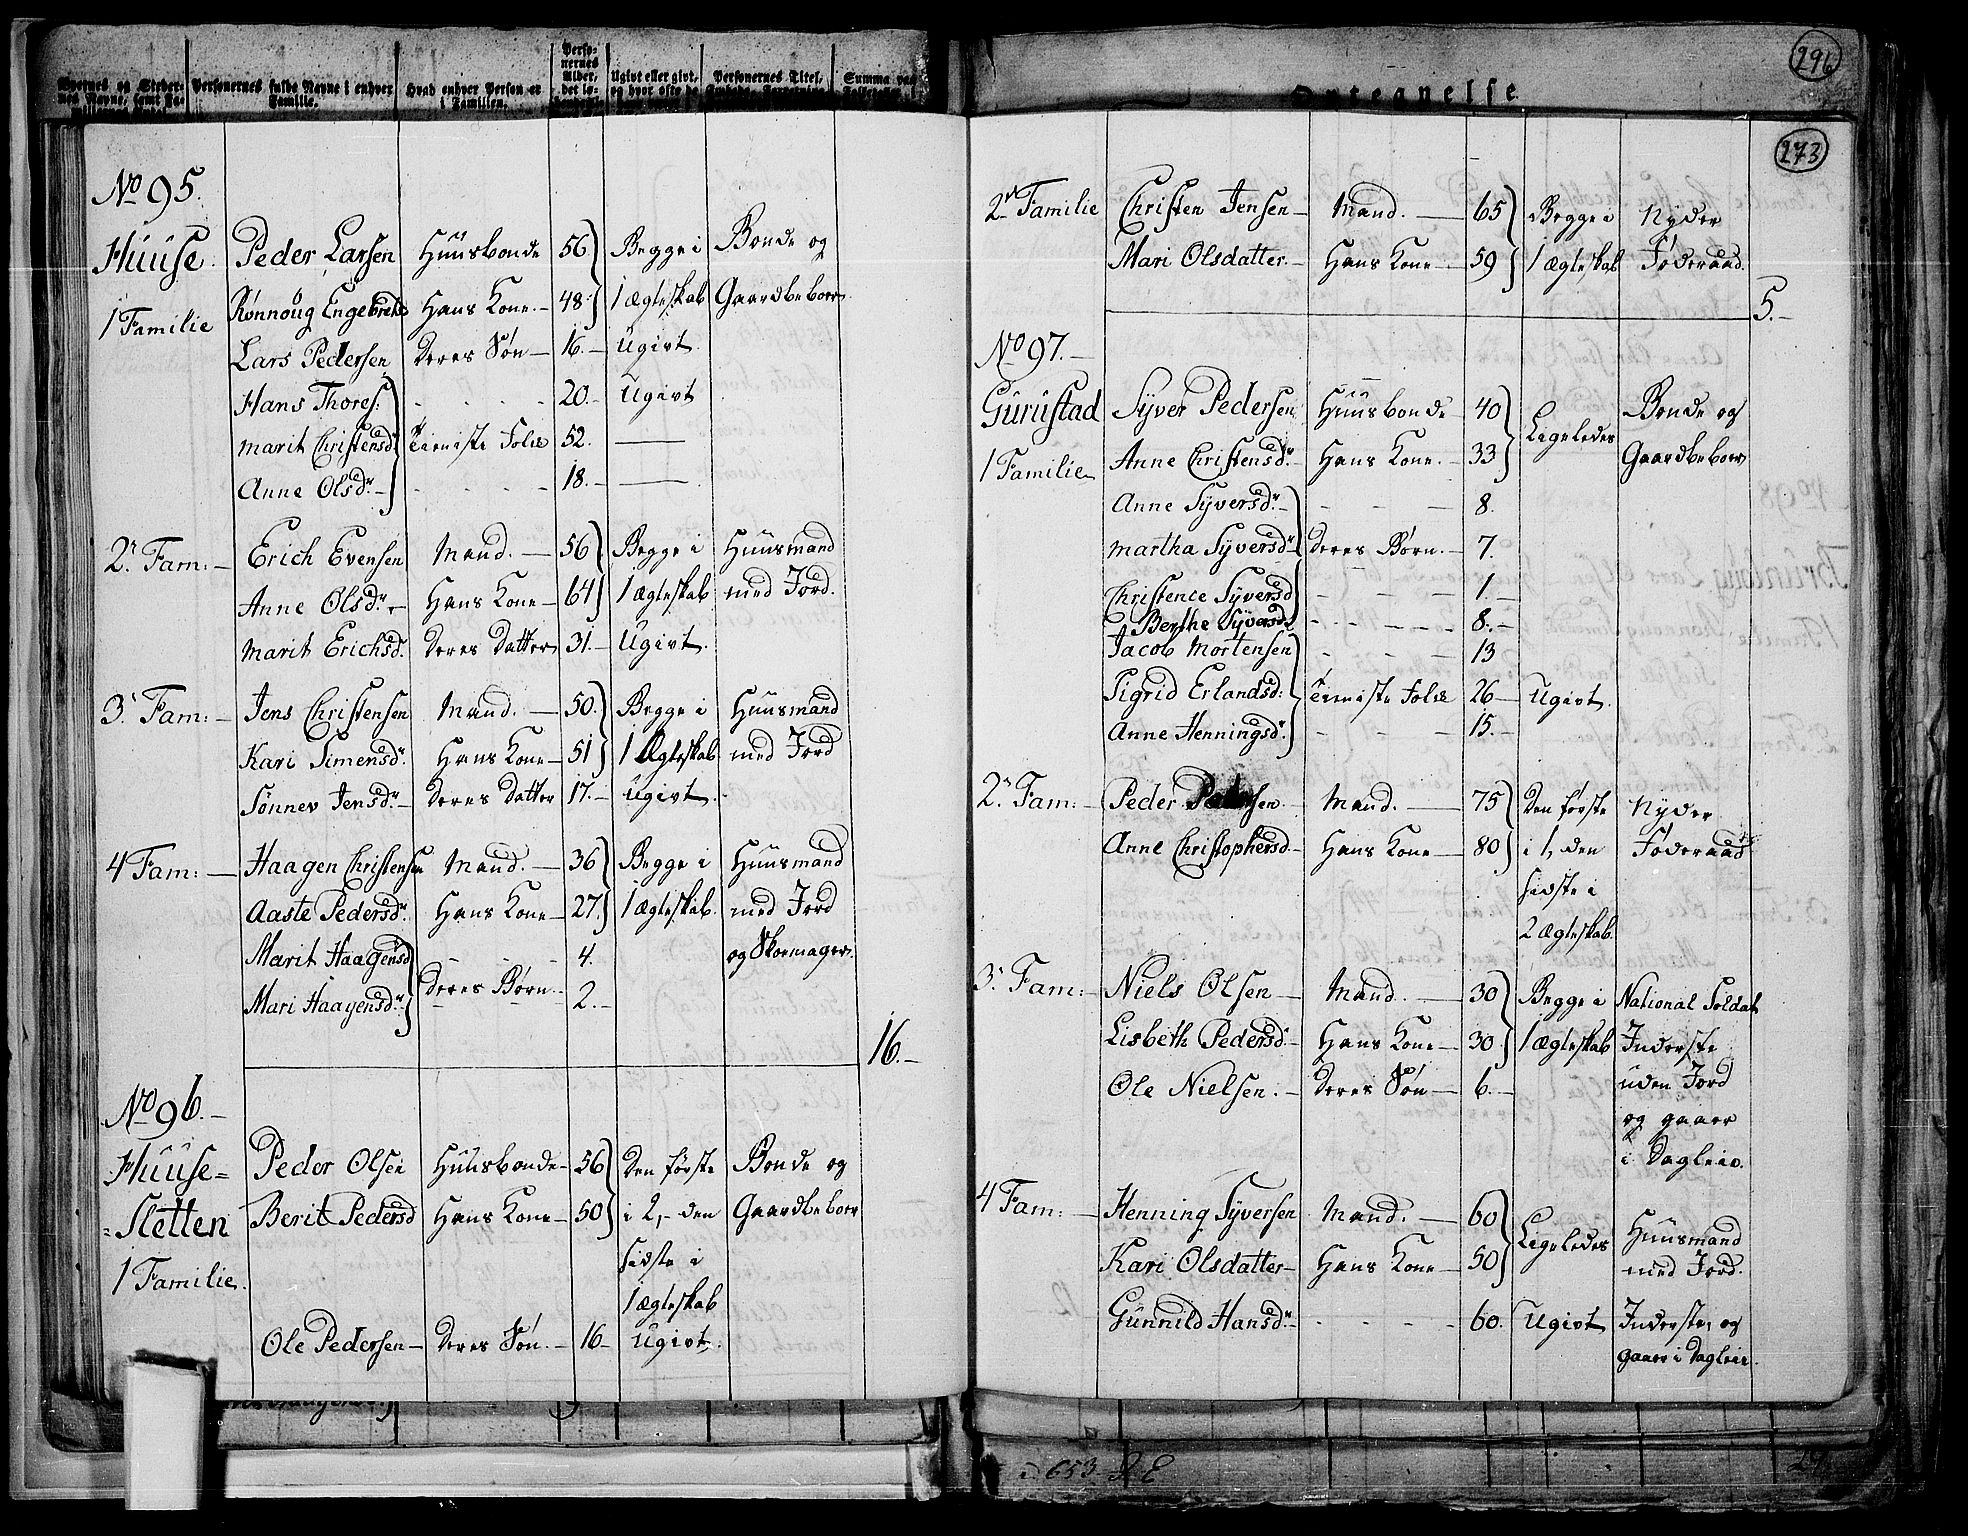 Byernes og Steder- Personernes fulde Navne i enhver Hvad enhver Person er Perso-nernes Alder, Ugivt eller givt, Personernes Titel, Summa paa
nes Navne, samt Fa- Familie. i Familien. det lø- og hvor ofte de
Optegnelse
296
273
No 95.
Huuse Peder Larsen Huusbonde 56 Begge i Bonde og
1 Familie Rønnoug Engebrets Hans Kone. 48 1 Ægteskab Gaardbeboer
Lars Pedersen Deres Søn 16. Ugivt
Hans Thores: - - - 20. Ugivt
Marit Christensdr Tieniste Folk 52. —
Anne Olsdr. - - - 18. —
2r Fam: Erich Evensen Mand. 56 Begge i Huusmand
Anne Olsdr. Hans Kone 64 1 Ægteskab med Jord.
Marit Erichsd. Deres Datter 31. Ugivt.
3r Fam: Jens Christensen Mand. 50. Begge i Huusmand
Kari Simensdr. Hans Kone 51 1 Ægteskab med Jord
Sønnev Jensdr. Deres Datter 17. Ugivt.
4 Fam: Haagen Christensen Mand. 36 Begge i Huusmand
Aaste Pedersdr. Hans Kone 27. 1 Ægteskab. med Jord
Marit Haagensd - - - 4. og Skoemager.
Mari Haagensdr. Deres Børn. 2.
16.
No 96.
Huuse= Peder Olsen Huusbonde 56 Den første Bonde og
=Sletten Berit Pedersd Hans Kone 50 i 2, den Gaardbeboer
1 Familie. sidste i
1 Ægteskab
Ole Pedersen Deres Søn. 16 Ugivt.
2r Familie Christen Jensen Mand. 65 Begge i Nyder
Mari Olsdatter. Hans Kone 59 1 Ægteskab Føderaad.
5.
No 97.
Gurustad Syver Pedersen Huusbonde 40 Ligeledes Bonde og
1 Familie Anne Christensdr. Hans Kone. 33 Gaardbeboer
Anne Syversdr. - - - 8.
Martha Syversdr. Deres Børn. 7.
Christence Syversd - - - 1.
Berthe Syversd - - - 8.
Jacob Mortensen - - - 13
Sigrid Erlandsd: Tieniste Folk 26 Ugivt.
Anne Henningsdr. - - - 15.
2r Fam: Peder Pedersen Mand. 75 Den første Nyder
Anne Christophersd Hans Kone 80 i 1, den Føderaad
sidste i
2 Ægteskab.
3r Fam: Niels Olsen Mand. 30 Begge i National Soldat
Lisbeth Pedersdr. Hans Kone 30 1 Ægteskab Inderste
Ole Nielsen. Deres Søn 6. uden Jord
og gaaer
i Dagleie.
4 Fam: Henning Syversen Mand. 60 Ligeledes Huusmand
Kari Olsdatter Hans Kone 50 med Jord.
Gunnild Hansdr. - - - 60. Ugivt Inderste, og
gaaer i Dagleie.
653